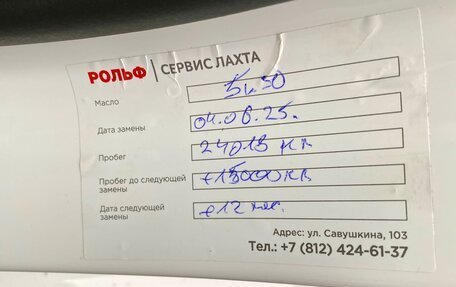 РОЛЬФ | СЕРВИС ЛАХТА
Масло 5w30
Дата замены 04.06.25.
Пробег 24013 км
Пробег до следующей замены +15000 км
Дата следующей замены +12 мес.
Адрес: ул. Савушкина, 103
Тел.: +7 (812) 424-61-37